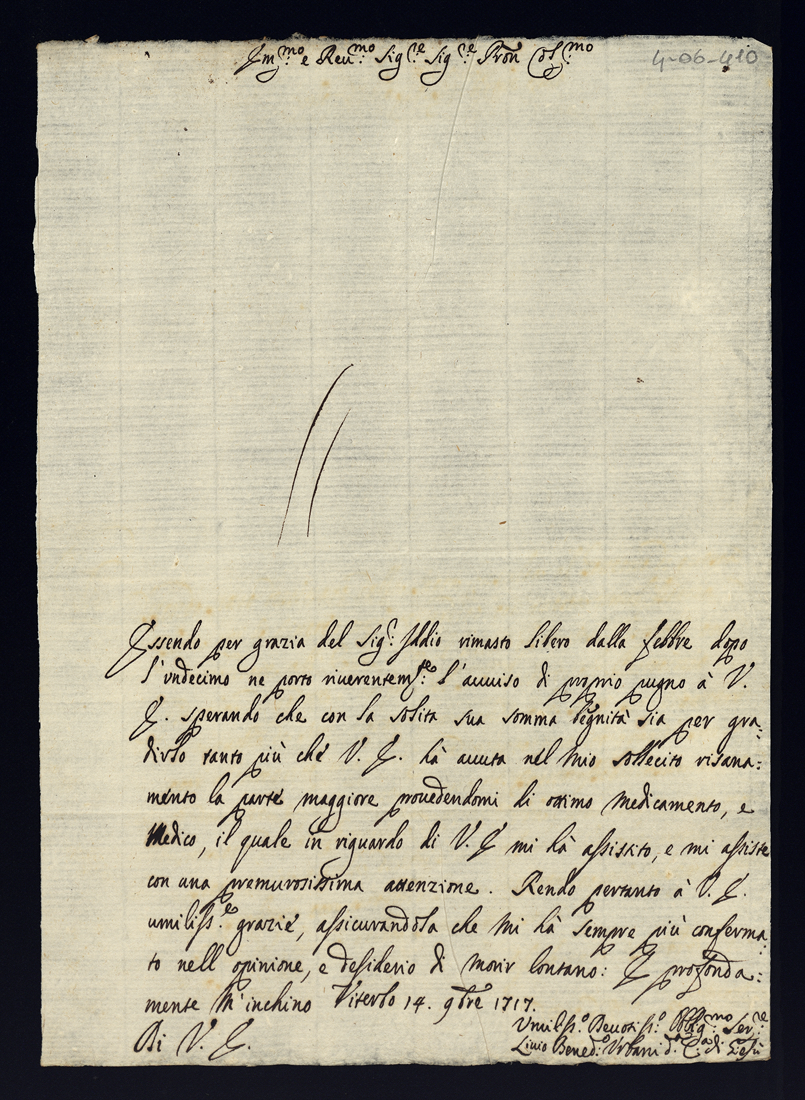 Em.mo e Reu.mo Sig.re Sig.re Pron Col.mo
4-06-410
Essendo per grazia del Sig.r Iddio rimasto libero dalla febbre dopo
l'undecimo ne porto riuerentem.te l'auuiso di proprio pugno à V.
E. sperando che con la solita sua somma begnità sia per gra:
dirlo tanto più che V. E. hà auuta nel mio sollecito risana:
mento la parte maggiore prouedendomi di ottimo medicamento, e
Medico, il quale in riguardo di V. E. mi hà assistito, e mi assiste
con una premurosissima attenzione. Rendo pertanto à V. E.
umiliss.e grazie, assicurandola che mi hà sempre più conferma:
to nell opinione, e desiderio di morir lontano: E profonda:
mente m'inchino Viterbo 14. 9bre 1717.
Di V. E.
Vmiliss.o Deuotiss.o Obblig.mo Ser.re
Liuio Bened.o Vrbani d.a C.a di Giesù